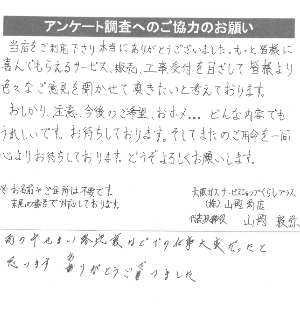 アンケート調査へのご協力のお願い
当店をご利用下さり本当にありがとうございました。もっと皆様に
喜んでもらえるサービス、販売、工事受付を目ざして皆様より
色々なご意見を聞かせて頂きたいと考えております。
おしかり、注意、今後のご希望、おホメ…どんな内容でも
うれしいです。お待ちしております。そしてまたのご用命を一同
心よりお待ちしております。どうぞよろしくお願いします。
※お名前やご住所は不要です。
大阪ガスサービスショップくらしプラス
(株)山岡商店
代表取締役 山岡
お仕事大変だったと
思います ありがとうございました